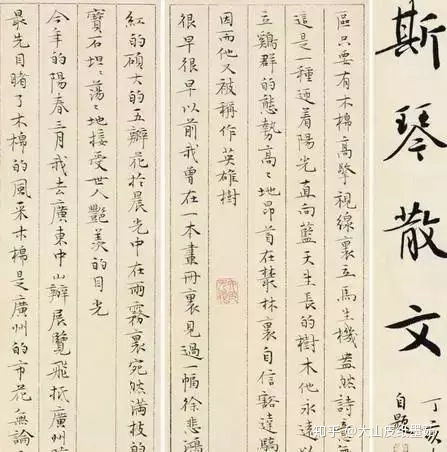 斯琴散文
丁亥
自題
區只要有木棉高擎視線裏立馬生機盎然詩意
這是一種迎着陽光直向藍天生長的樹木他永遠以
立鷄群的態勢高々地昂首在叢林裏自信豁達驕
因而他又被稱作英雄樹
很早很早以前我曾在一本畫冊裏見過一幅徐悲鴻
紅的碩大的五瓣花於晨光中在雨霧裏宛然滿枝的
寶石坦々蕩々地接受世人艷羨的目光
今年的陽春三月我去廣東中山辦展覽飛抵廣州
最先目睹了木棉的風采木棉是廣州的市花無論
知乎 @大山皮纸